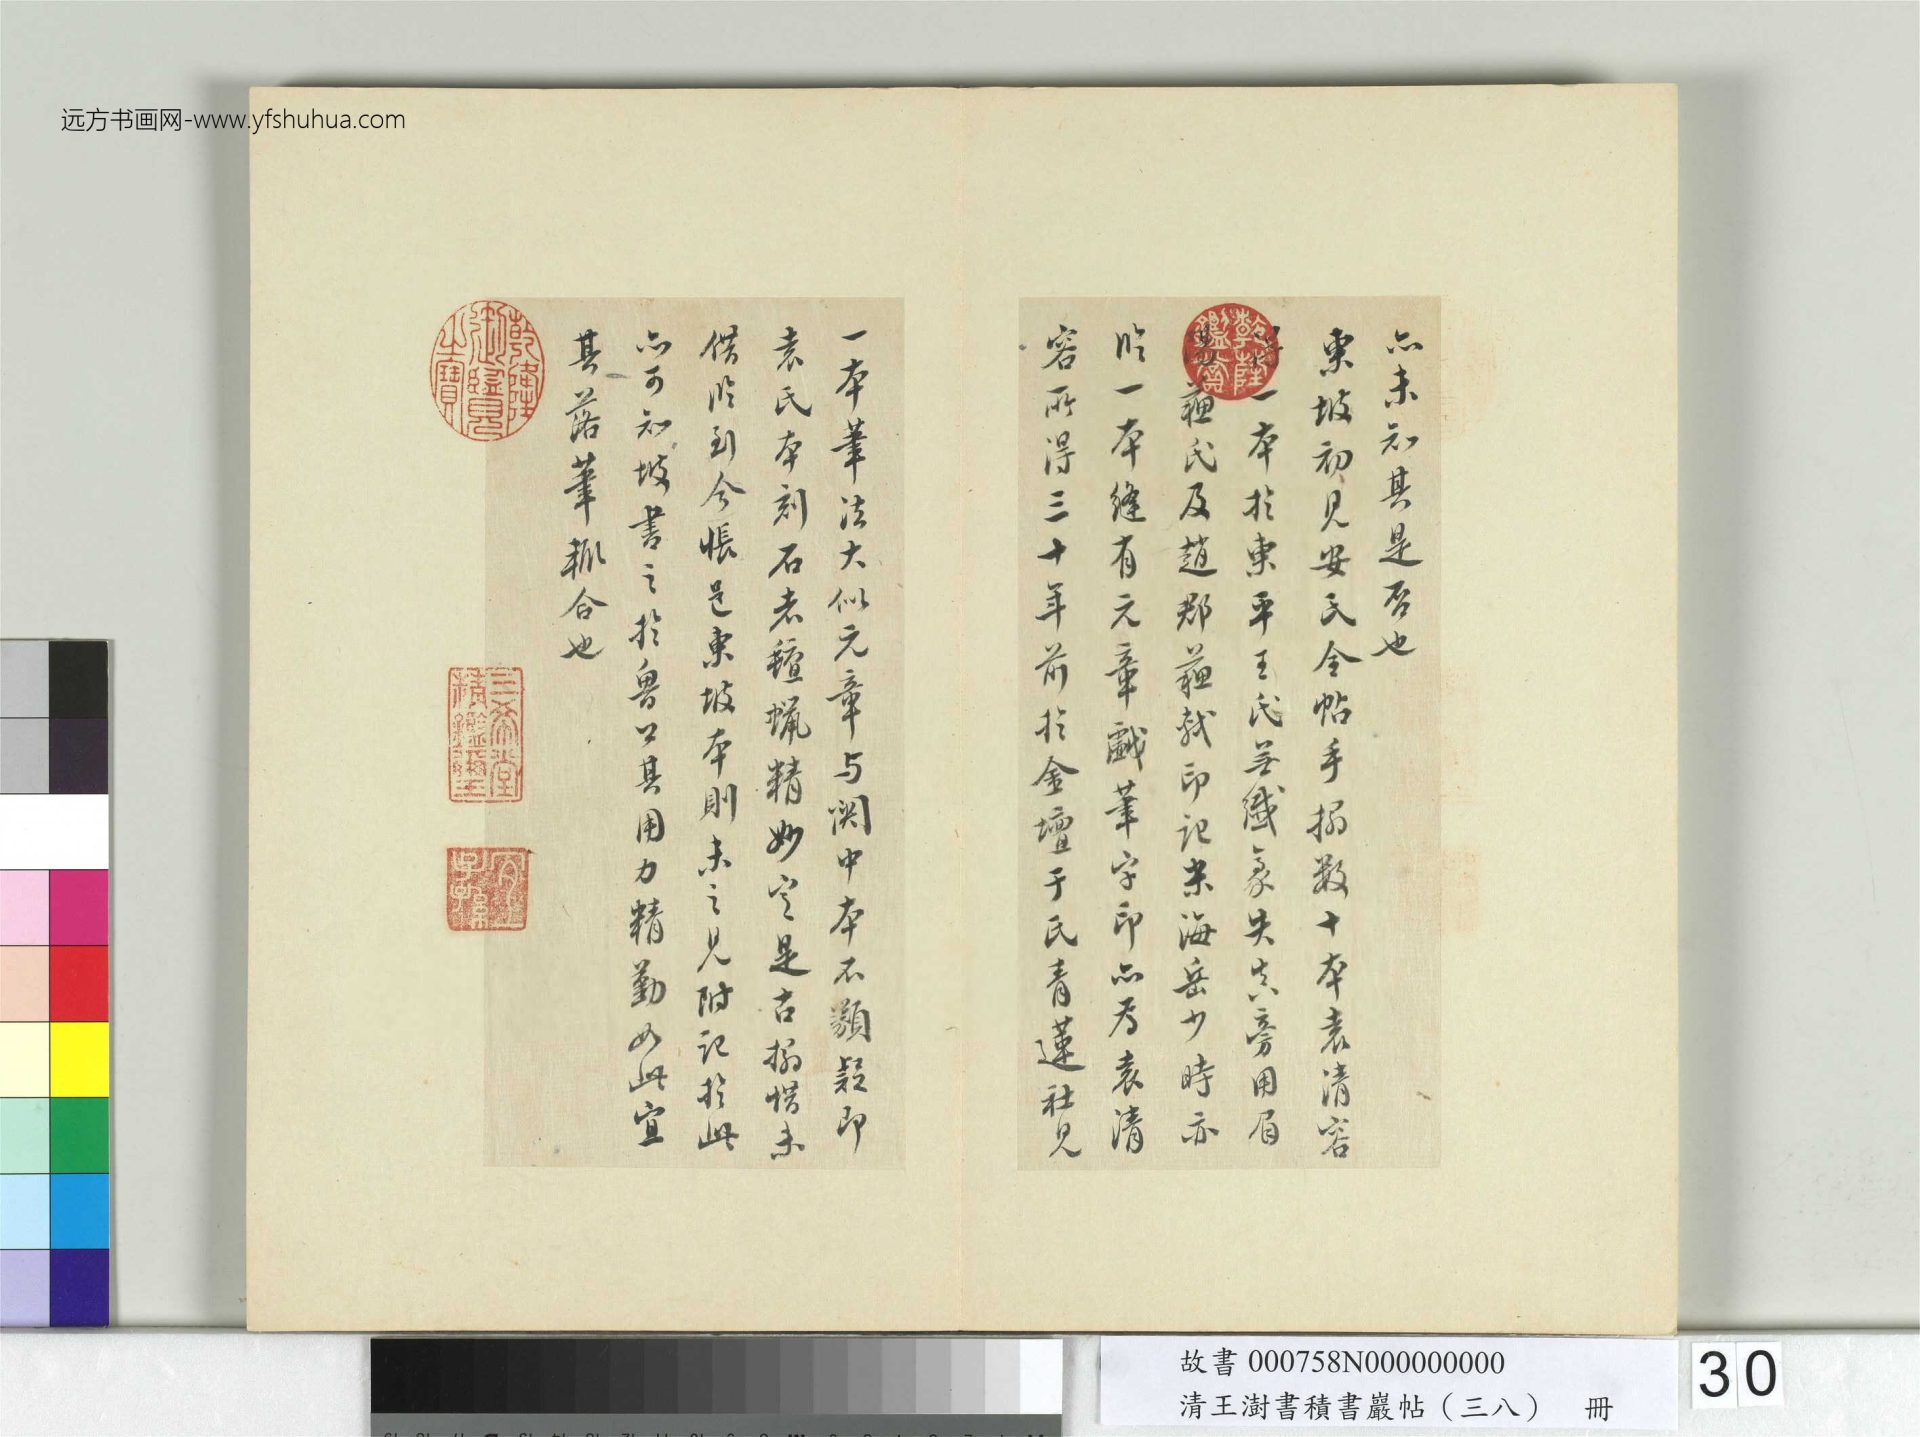 远方书画网-www.yfshuhua.com
亦未知其是否也
東坡初見安氏全帖手搨数十本袁清容
得一本於東平王氏無纖豪失真旁用眉
蘇氏及趙郡蘇軾印記米海岳少時亦
臨一本縫有元章戲筆字印亦為袁清
容所得三十年前於金壇于氏青蓮社見
一本筆法大似元章与関中本不類疑即
袁氏本刻石者氊蠟精妙定是古搨惜未
借臨到今悵悒東坡本則未之見附記於此
亦可知坡書之於魯公其用力精勤如此宜
其落筆輒合也
乾隆鑑賞
乾隆御覽之寶
三希堂精鑑璽
宜子孫
故書000758N000000000
清王澍書積書巖帖（三八） 冊
30